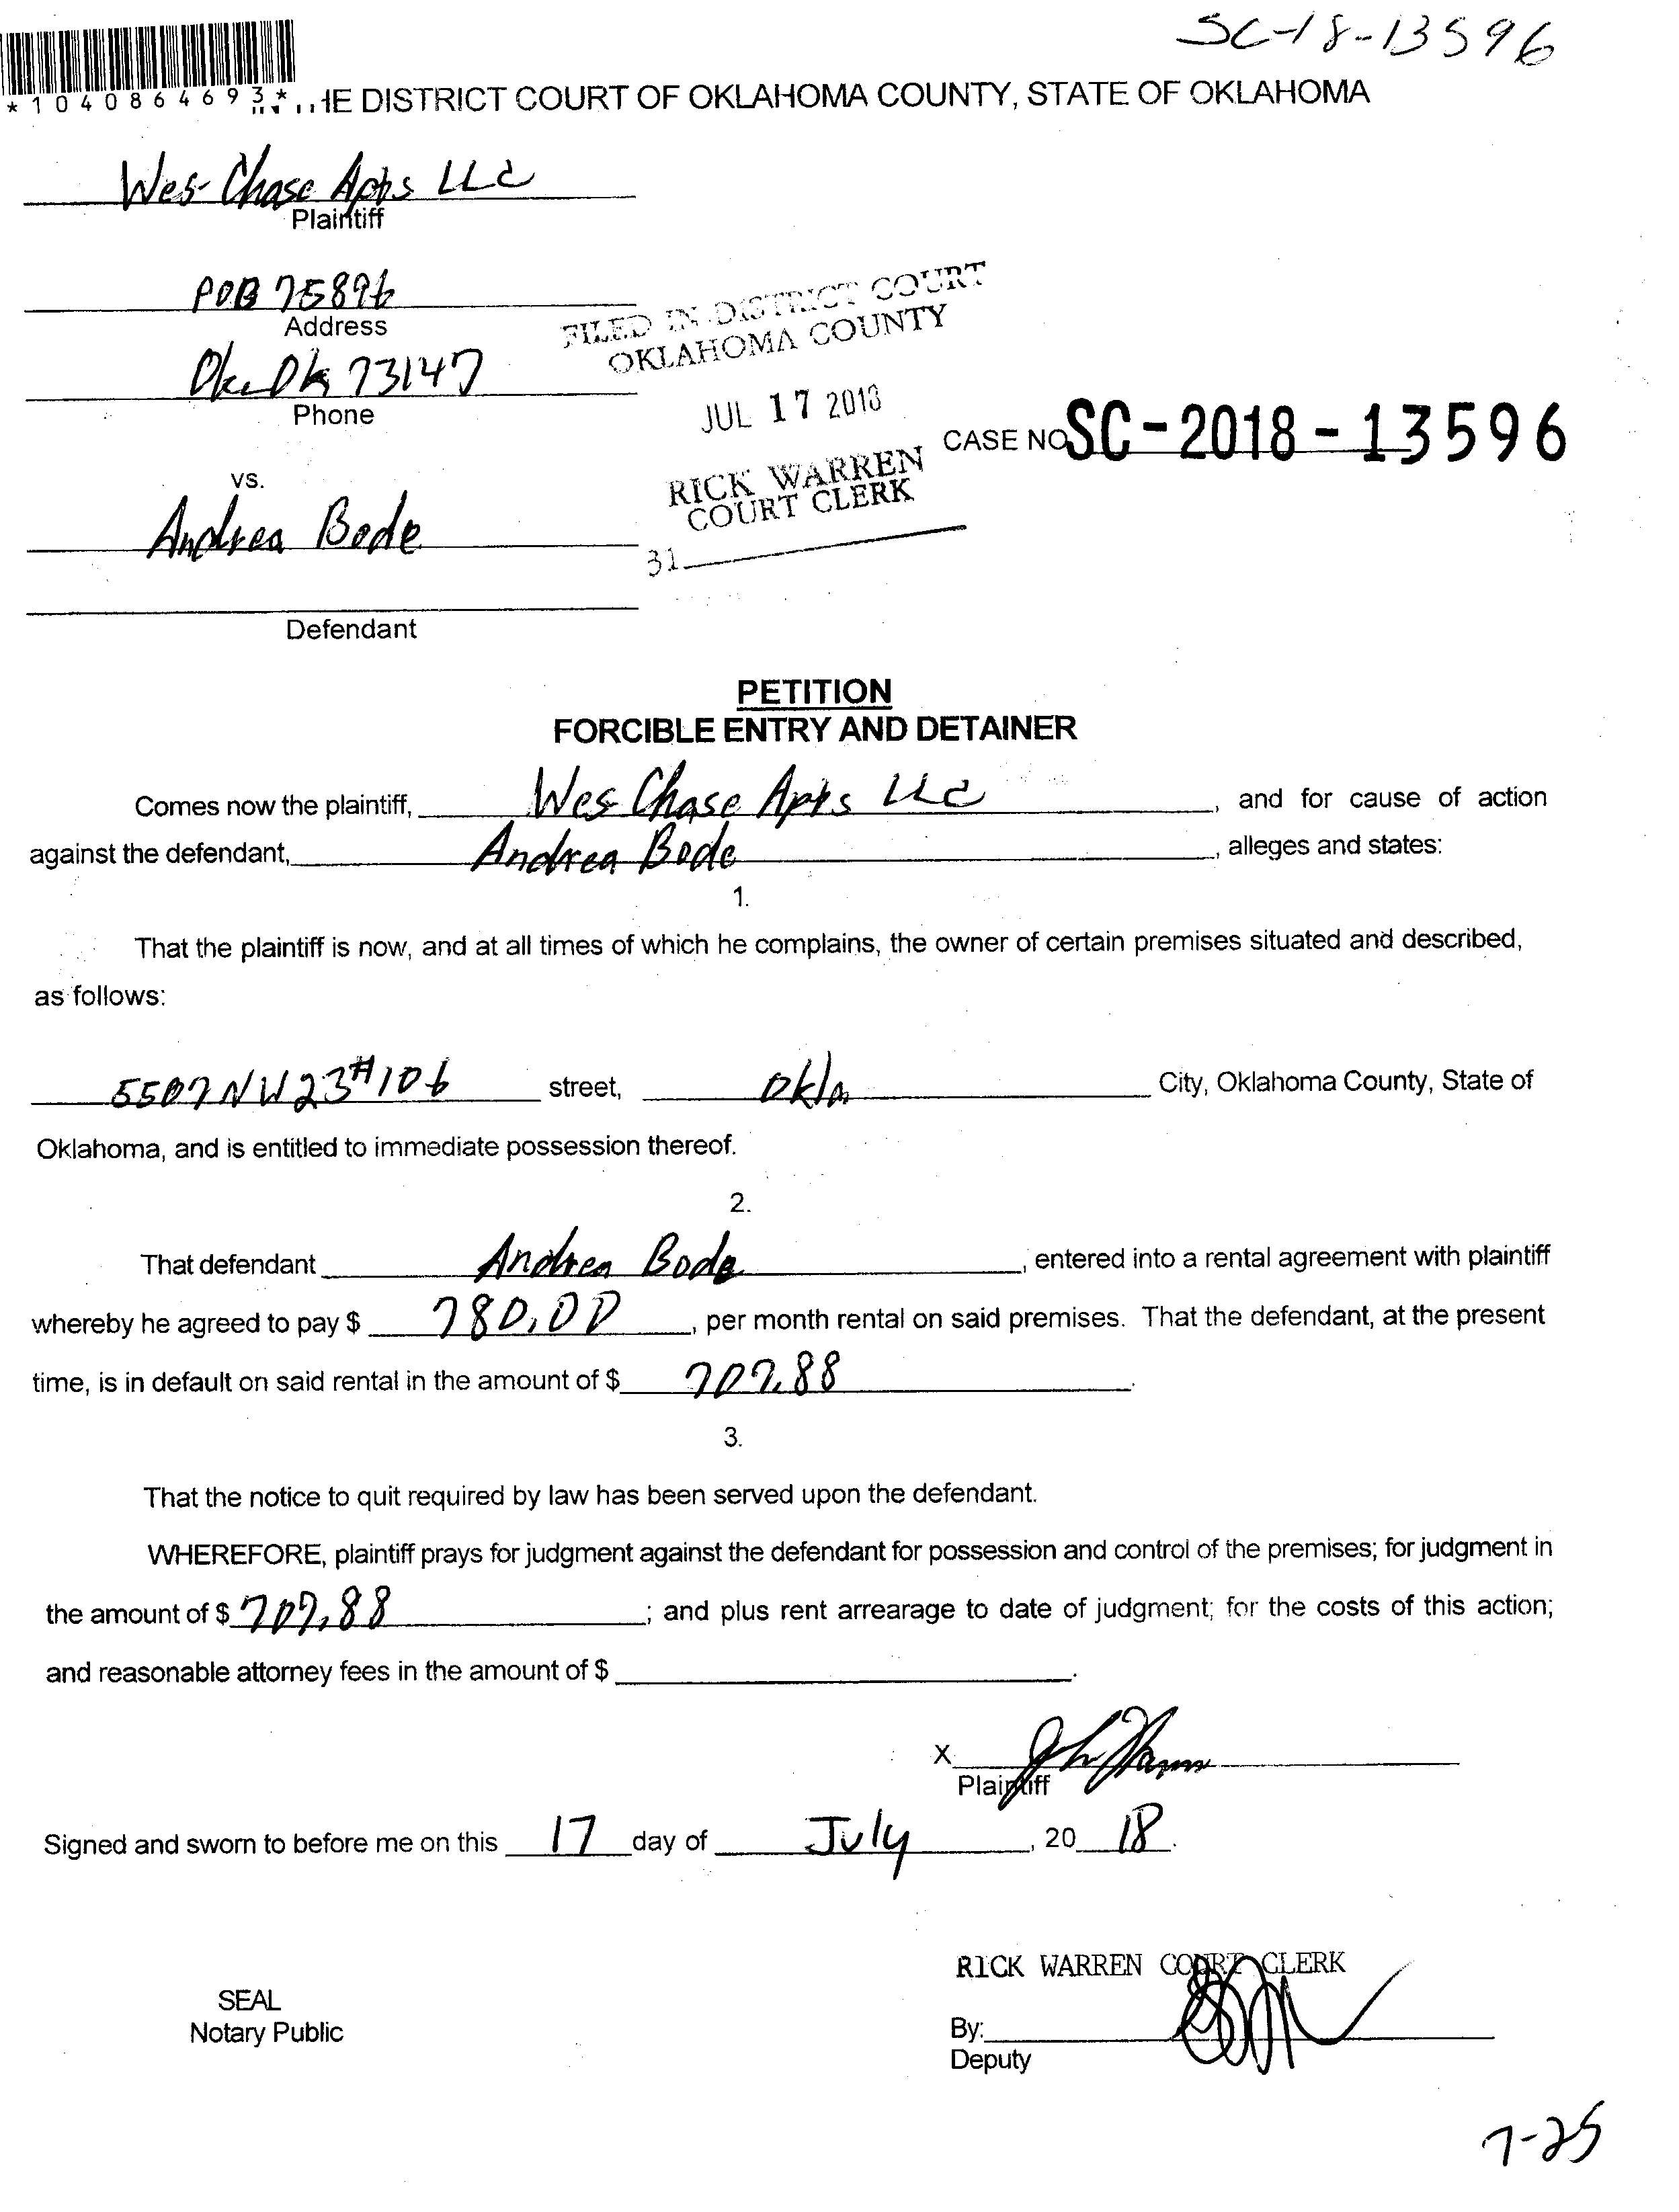 SC-18-13596
*1040864693*
HE DISTRICT COURT OF OKLAHOMA COUNTY, STATE OF OKLAHOMA
Wes Chase Apts LLC
Plaintiff
POB 75896
Address
Okc Ok 73147
Phone
FILED IN DISTRICT COURT
OKLAHOMA COUNTY
JUL 17 2018
RICK WARREN
COURT CLERK
31
CASE NO SC-2018-13596
vs.
Andrea Bode
Defendant
PETITION
FORCIBLE ENTRY AND DETAINER
Comes now the plaintiff, Wes Chase Apts LLC, and for cause of action
against the defendant, Andrea Bode, alleges and states:
1.
That the plaintiff is now, and at all times of which he complains, the owner of certain premises situated and described,
as follows:
5507 NW 23 #106 street, Okla City, Oklahoma County, State of
Oklahoma, and is entitled to immediate possession thereof.
2.
That defendant Andrea Bode, entered into a rental agreement with plaintiff
whereby he agreed to pay $ 780.00, per month rental on said premises. That the defendant, at the present
time, is in default on said rental in the amount of $ 707.88.
3.
That the notice to quit required by law has been served upon the defendant.
WHEREFORE, plaintiff prays for judgment against the defendant for possession and control of the premises; for judgment in
the amount of $ 707.88; and plus rent arrearage to date of judgment; for the costs of this action;
and reasonable attorney fees in the amount of $ .
X
Plaintiff
Signed and sworn to before me on this 17 day of July, 20 18.
RICK WARREN COURT CLERK
SEAL
Notary Public
By:
Deputy
7-25